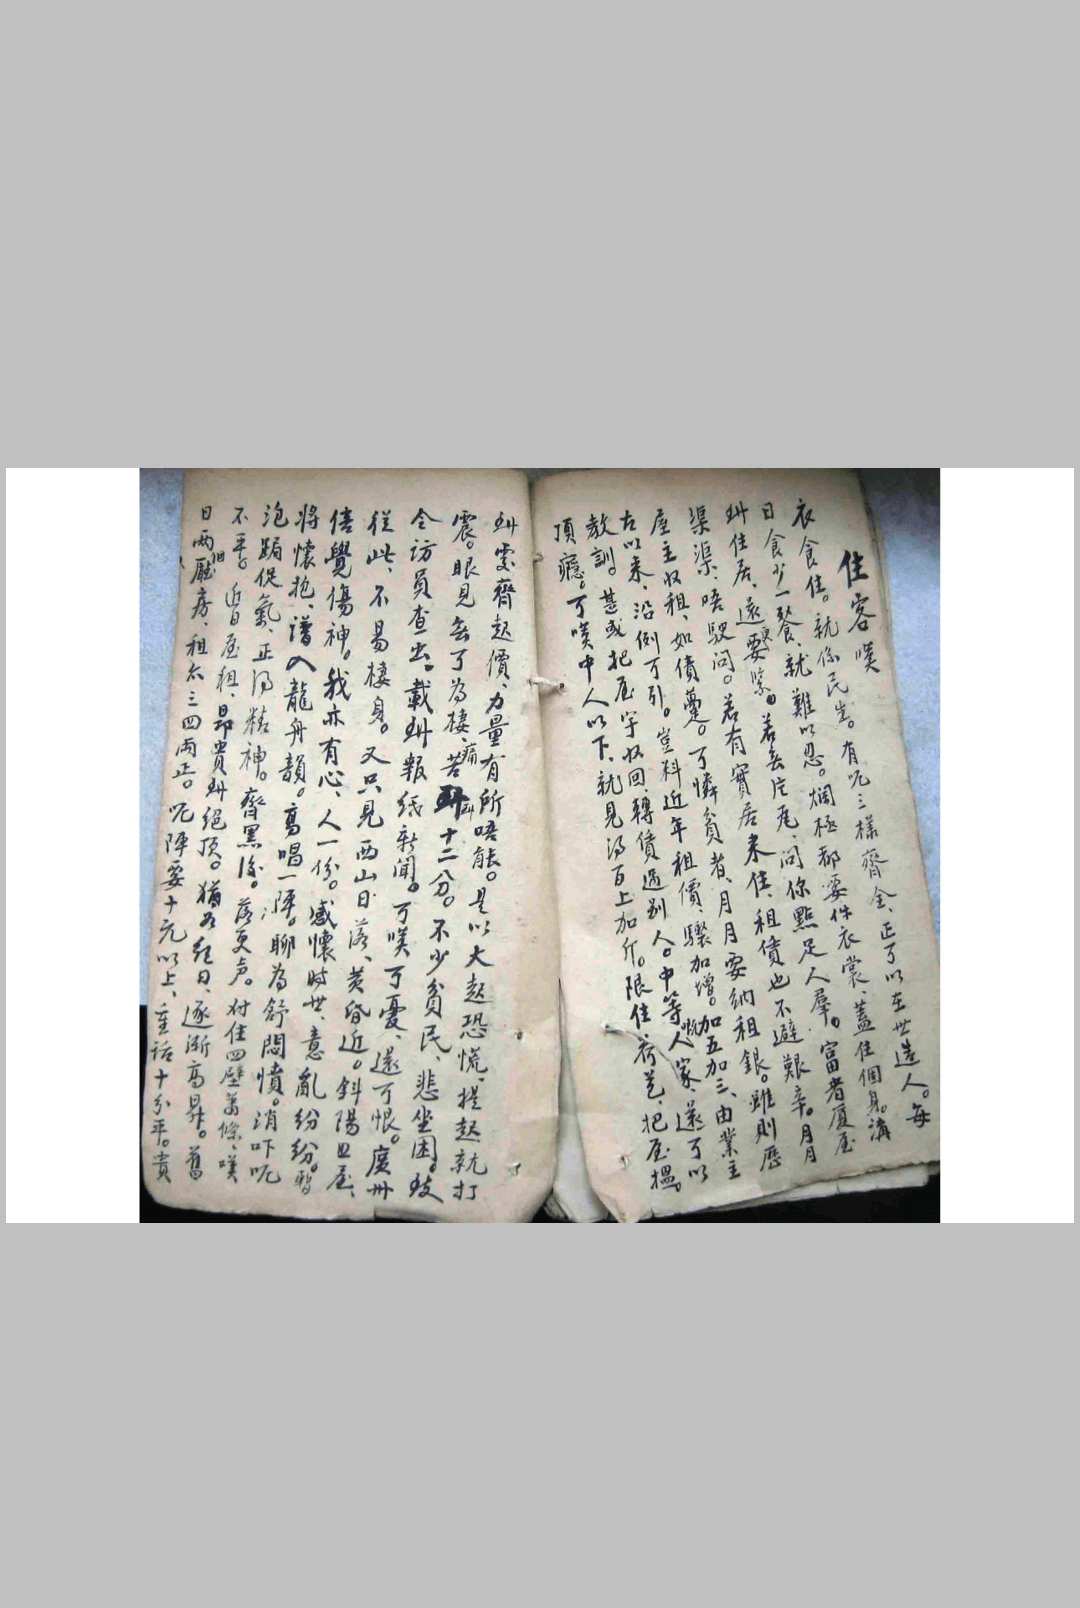 住客嘆
衣食住。就係民生。有呢三樣齊全、正可以在世造人。每
日食少一餐、就難以忍。爛極都要件衣裳、蓋住個身。講
到住居、還更要緊。若無片瓦、問你點足人羣。富者廈屋
渠渠、唔駛問。若有實居來住、租債也不避艱辛。月月
屋主收租、如債臺。可憐貧者、月月要納租銀。雖則歷
古以來、沿例可引。豈料近年租價、驟加增。加五加三、由業主
教訓。甚或把屋宇收回、轉債過別人。中等嘅人家、還可以
頂癮。可嘆中人以下、就見得百上加斤。限住、把屋搵。
到處齊起價、力量有所唔能。是以大起恐慌、提起就打
震。眼見無可為棲、痛苦到十二分。不少貧民、悲坐困。致
令訪員查出、載到報紙新聞。可嘆可憂、還可恨。廣州
從此、不易棲身。又只見西山日落、黃昏近。斜陽照屋、
倍覺傷神。我亦有心、人一份。感懷時世、意亂紛紛。暫
將懷抱、譜入龍舟韻。高唱一陣。聊為舒悶憤。消吓呢
泡跼促氣、正得精神。齊黑後。落更聲。對住四壁蕭條、嘆
不平。近日屋租、昂貴到絕頂。猶如紅日、逐漸高昇。舊
日兩廳房、租銀三四両正。呢陣要十元以上、重話十分平。貴